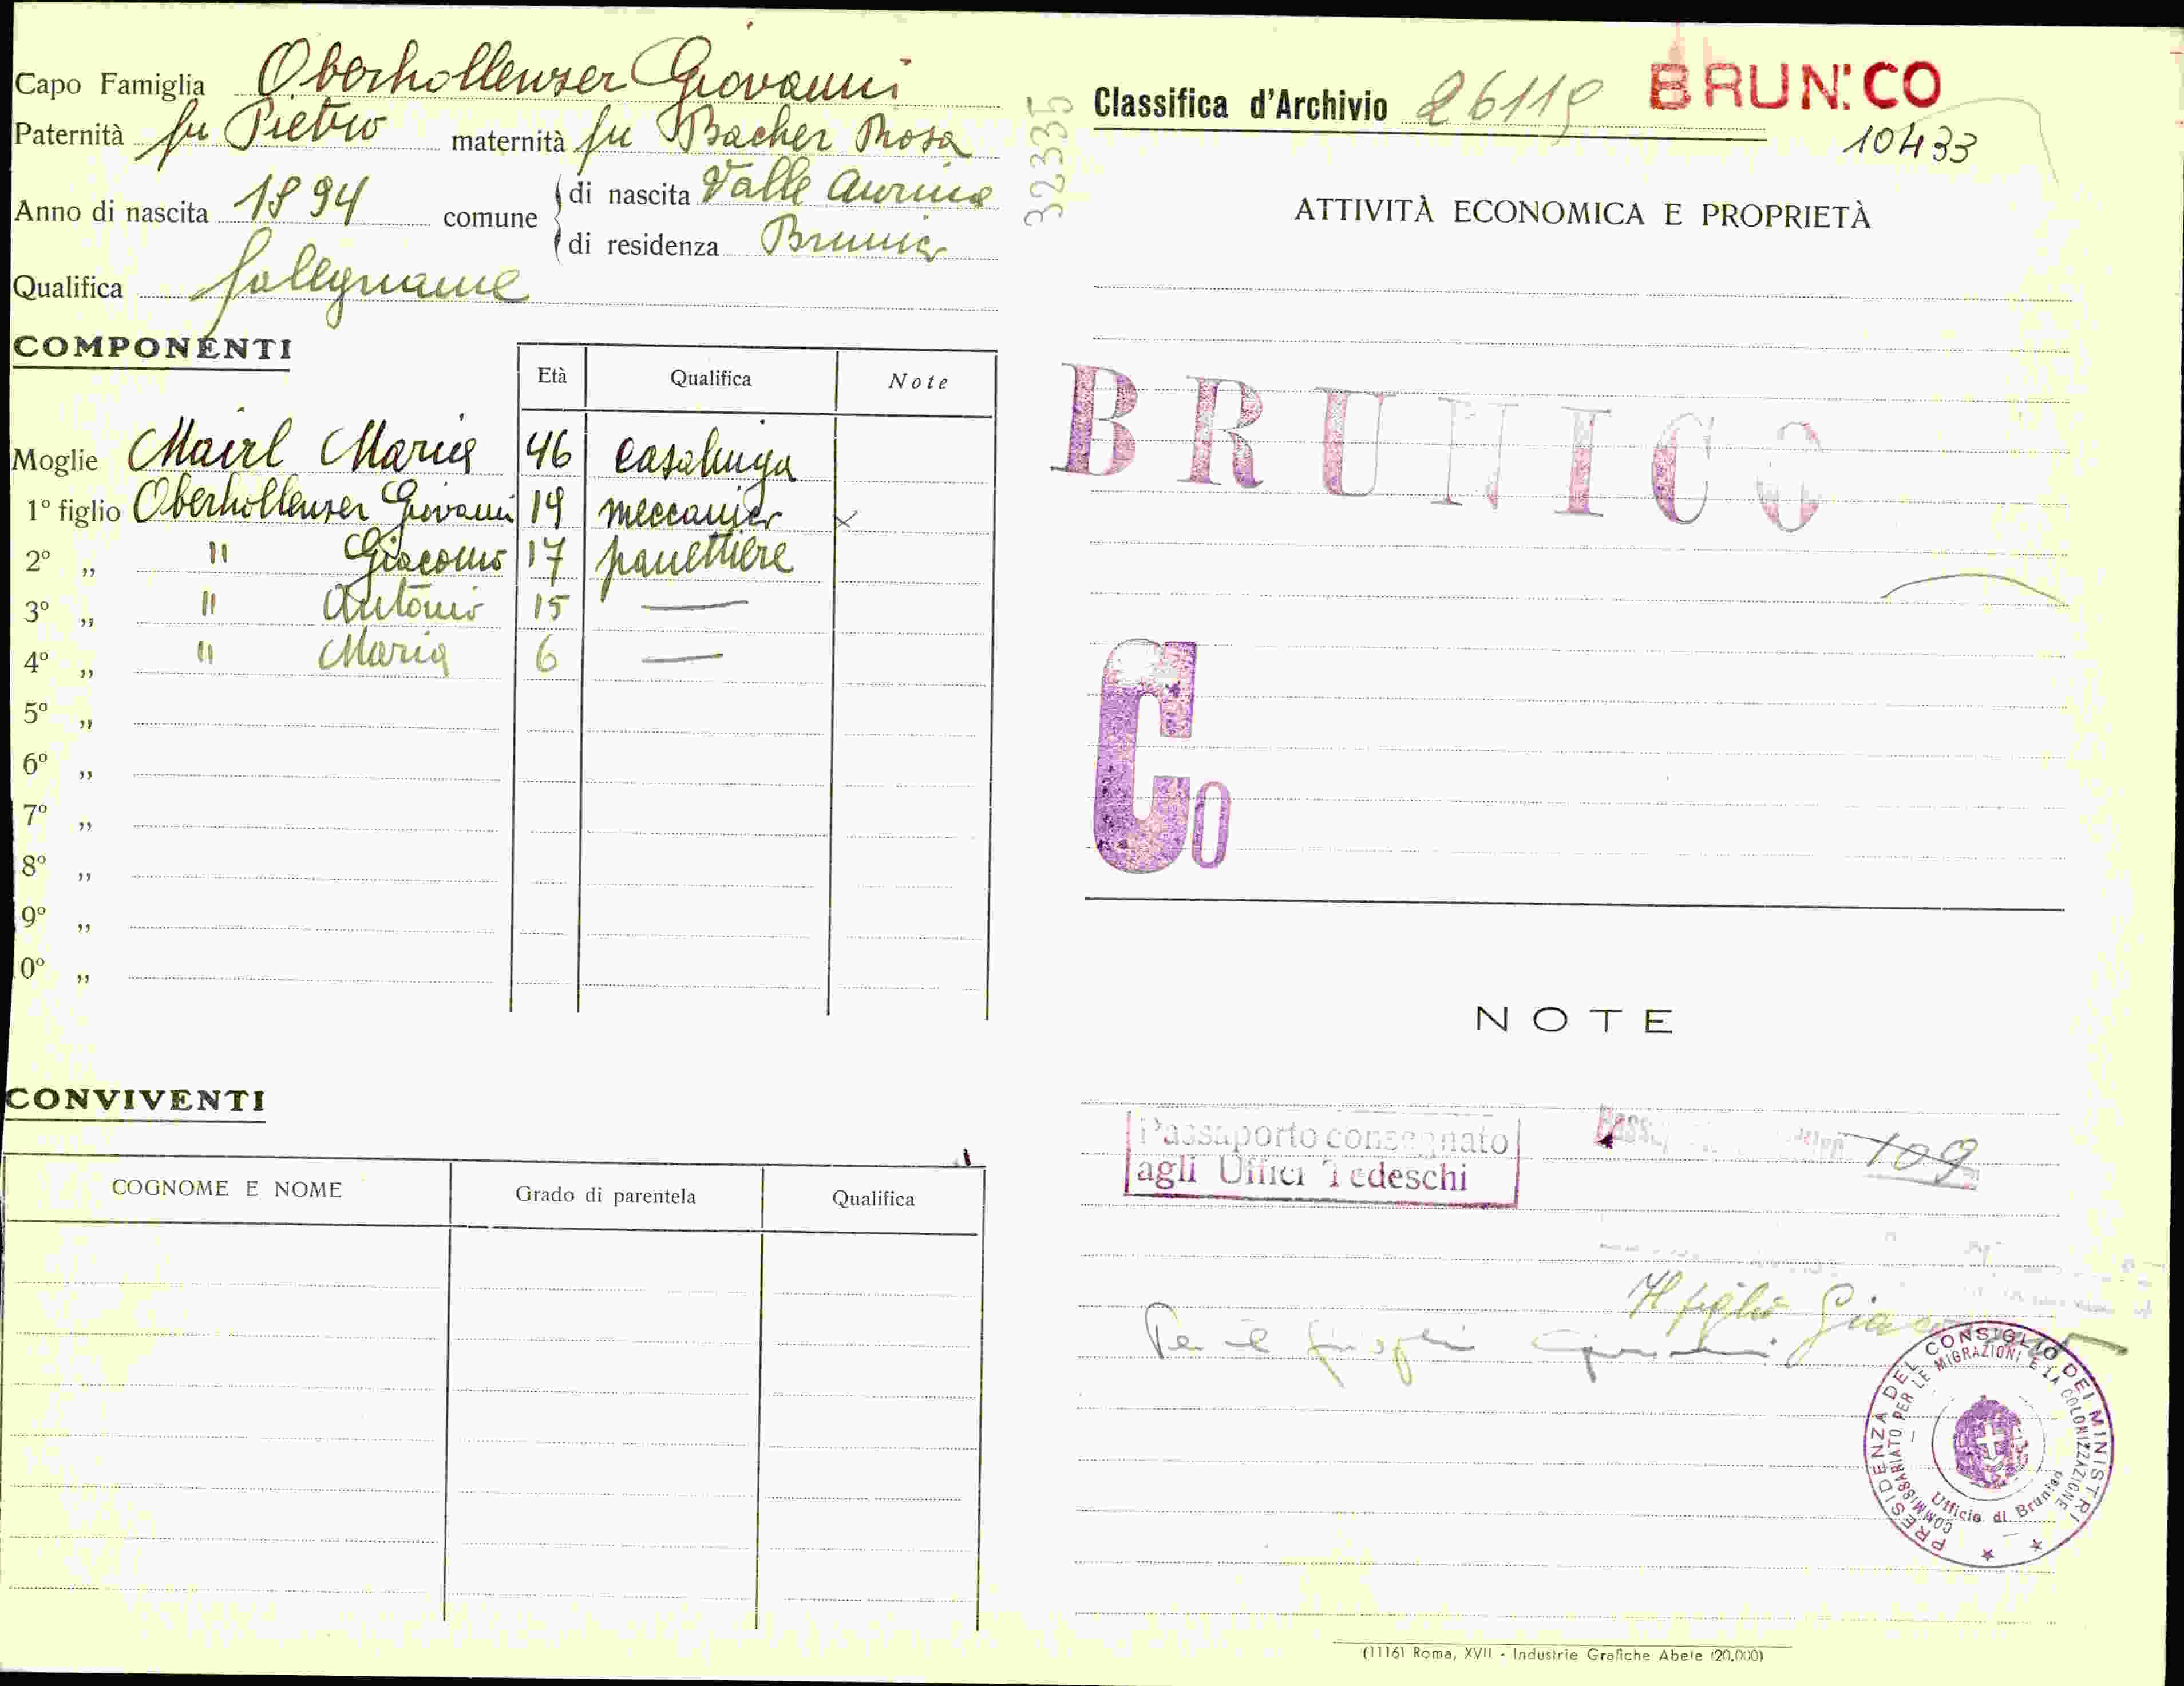 Capo Famiglia Oberhollenzer Giovanni
Paternità fu Pietro maternità fu Bacher Rosa
Anno di nascita 1894 comune di nascita Valle Aurina
di residenza Brunico
Qualifica falegname
COMPONENTI
Età Qualifica Note
Moglie Mairl Maria 46 casalinga
1º figlio Oberhollenzer Giovanni 19 meccanico x
2º „ " Giacomo 17 panettiere
3º „ " Antonio 15 —
4º „ " Maria 6 —
5º „
6º „
7º „
8º „
9º „
0º „
CONVIVENTI
COGNOME E NOME Grado di parentela Qualifica
32335
Classifica d'Archivio 26119 BRUNICO
10433
ATTIVITÀ ECONOMICA E PROPRIETÀ
BRUNICO
Co
NOTE
Passaporto consegnato
agli Uffici Tedeschi
109
Il figlio Giacomo
Per il
PRESIDENZA DEL CONSIGLIO DEI MINISTRI
COMMISSARIATO PER LE MIGRAZIONI E LA COLONIZZAZIONE
Ufficio di Brunico
(1116) Roma, XVII - Industrie Grafiche Abete (20.000)